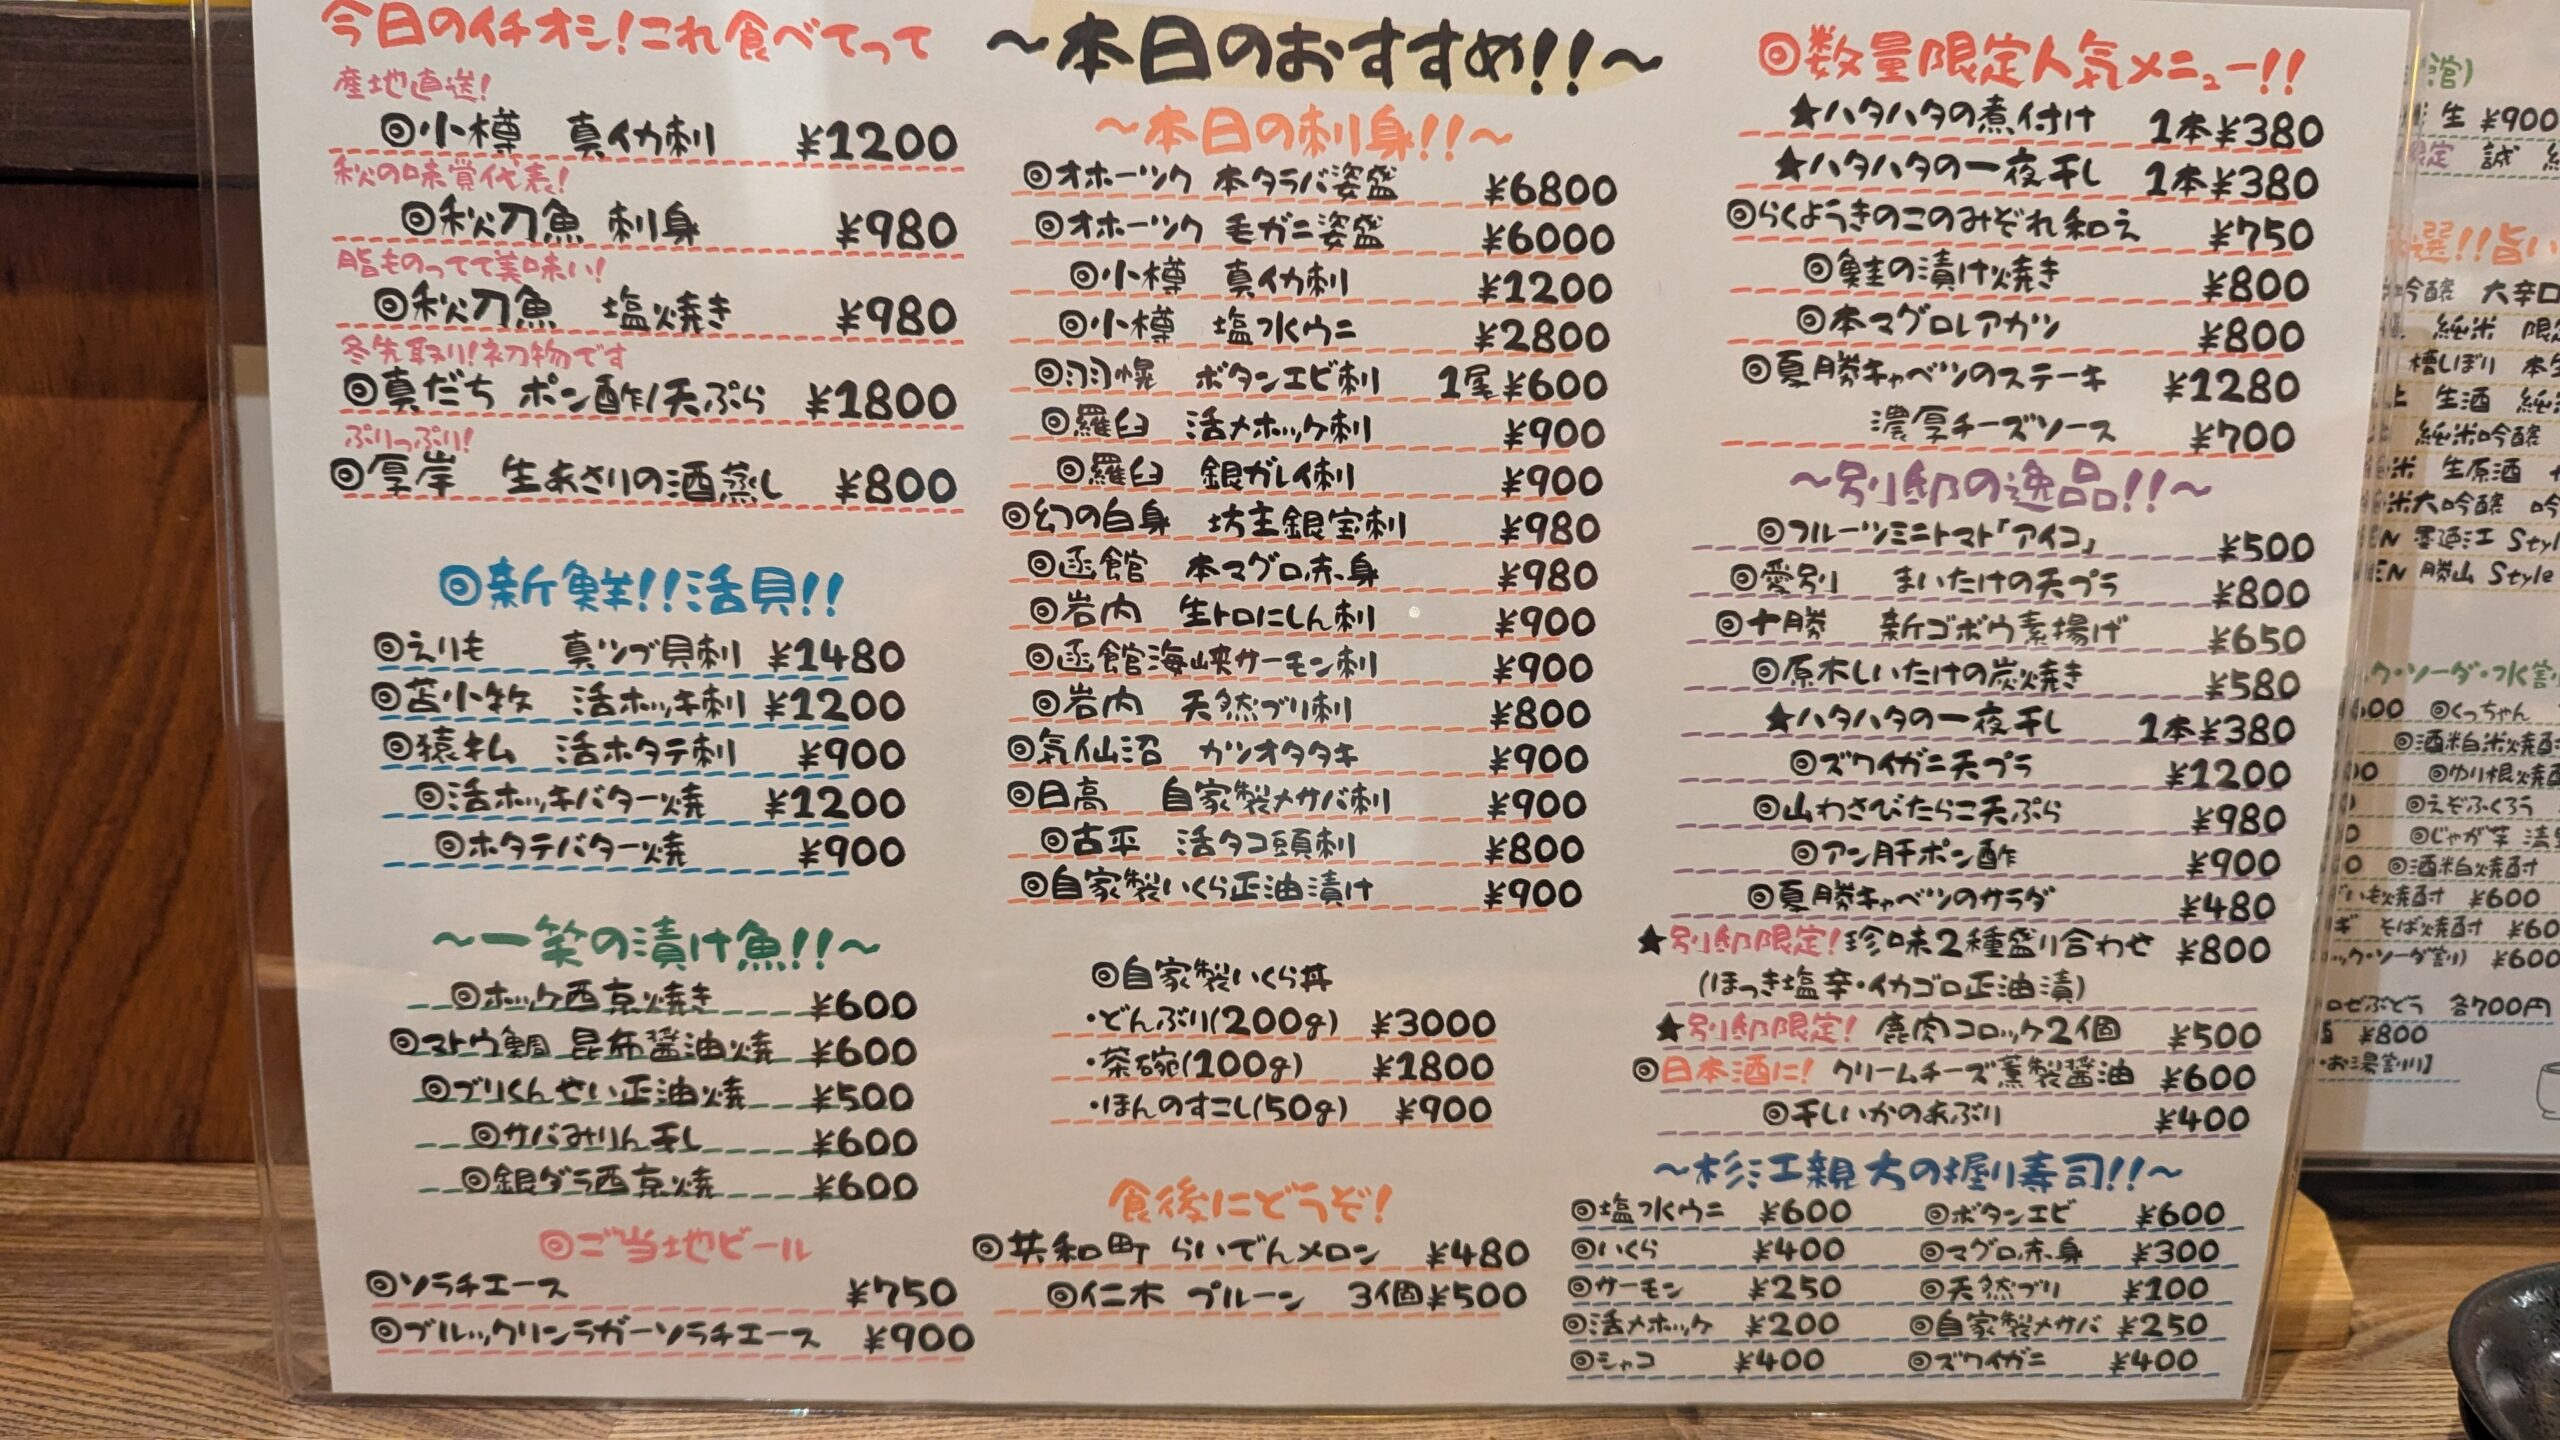 今日のイチオシ!これ食べてって
産地直送!
◎小樽 真イカ刺 ¥1200
秋の味覚代表!
◎秋刀魚 刺身 ¥980
脂ものってて美味い!
◎秋刀魚 塩焼き ¥980
冬先取り!初物です
◎真だち ポン酢/天ぷら ¥1800
ぷりっぷり!
◎厚岸 生あさりの酒蒸し ¥800
◎新鮮!!活貝!!
◎えりも 真ツブ貝刺 ¥1480
◎苫小牧 活ホッキ刺 ¥1200
◎猿払 活ホタテ刺 ¥900
◎活ホッキバター焼 ¥1200
◎ホタテバター焼 ¥900
～一笑の漬け魚!!～
◎ホッケ西京焼き ¥600
◎マトウ鯛 昆布醤油焼 ¥600
◎ブリくんせい正油焼 ¥500
◎サバみりん干し ¥600
◎銀ダラ西京焼 ¥600
◎ご当地ビール
◎ソラチエース ¥750
◎ブルックリンラガーソラチエース ¥900
～本日のおすすめ!!～
～本日の刺身!!～
◎オホーツク 本タラバ姿盛 ¥6800
◎オホーツク 毛ガニ姿盛 ¥6000
◎小樽 真イカ刺 ¥1200
◎小樽 塩水ウニ ¥2800
◎羽幌 ボタンエビ刺 1尾¥600
◎羅臼 活〆ホッケ刺 ¥900
◎羅臼 銀ガレイ刺 ¥900
◎幻の白身 坊主銀宝刺 ¥980
◎函館 本マグロ赤身 ¥980
◎岩内 生トロにしん刺 ¥900
◎函館海峡サーモン刺 ¥900
◎岩内 天然ブリ刺 ¥800
◎気仙沼 カツオタタキ ¥900
◎日高 自家製〆サバ刺 ¥900
◎古平 活タコ頭刺 ¥800
◎自家製いくら正油漬け ¥900
◎自家製いくら丼
・どんぶり(200g) ¥3000
・茶碗(100g) ¥1800
・ほんのすこし(50g) ¥900
食後にどうぞ!
◎共和町 らいでんメロン ¥480
◎仁木 プルーン 3個¥500
◎数量限定人気メニュー!!
★ハタハタの煮付け 1本¥380
★ハタハタの一夜干し 1本¥380
◎らくようきのこのみぞれ和え ¥750
◎鮭の漬け焼き ¥800
◎本マグロレアカツ ¥800
◎夏勝キャベツのステーキ ¥1280
濃厚チーズソース ¥700
～別邸の逸品!!～
◎フルーツミニトマト「アイコ」 ¥500
◎愛別 まいたけの天プラ ¥800
◎十勝 新ゴボウ素揚げ ¥650
◎原木しいたけの炭焼き ¥580
★ハタハタの一夜干し 1本¥380
◎ズワイガニ天プラ ¥1200
◎山わさびたらこ天ぷら ¥980
◎アン肝ポン酢 ¥900
◎夏勝キャベツのサラダ ¥480
★別邸限定!珍味2種盛り合わせ ¥800
(ほっき塩辛・イカゴロ正油漬)
★別邸限定! 鹿肉コロッケ2個 ¥500
◎日本酒に! クリームチーズ薫製醤油 ¥600
◎干しいかのあぶり ¥400
～杉江親大の握り寿司!!～
◎塩水ウニ ¥600 ◎ボタンエビ ¥600
◎いくら ¥400 ◎マグロ赤身 ¥300
◎サーモン ¥250 ◎天然ブリ ¥100
◎活〆ホッケ ¥200 ◎自家製〆サバ ¥250
◎シャコ ¥400 ◎ズワイガニ ¥400
生 ¥900
限定 誠
選!!旨い
吟醸 大辛口
純米 限定
槽しぼり 本生
生酒 純米
純米吟醸
生原酒
純米大吟醸
Style
勝山 Style
ック・ソーダ・水割
◎くっちゃん
◎酒粕米焼酎
◎ゆり根焼酎
◎えぞふくろう
◎じゃが芋
◎酒粕焼酎
いも焼酎 ¥600
そば焼酎 ¥60
ック・ソーダ割) ¥600
ロゼぶどう 各700円
¥800
・お湯割り】